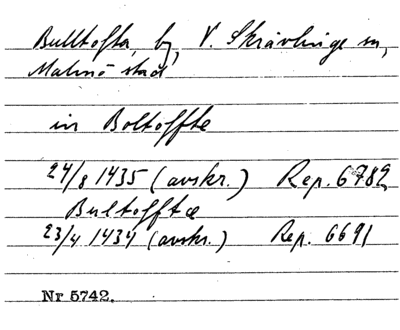 Bulltofta, by, V. Skrävlinge sn,
Malmö stad
in Boltoffte
24/8 1435 (avskr.) Rep. 6782
Bultofftæ
23/4 1434 (avskr.) Rep. 6691
Nr 5742.